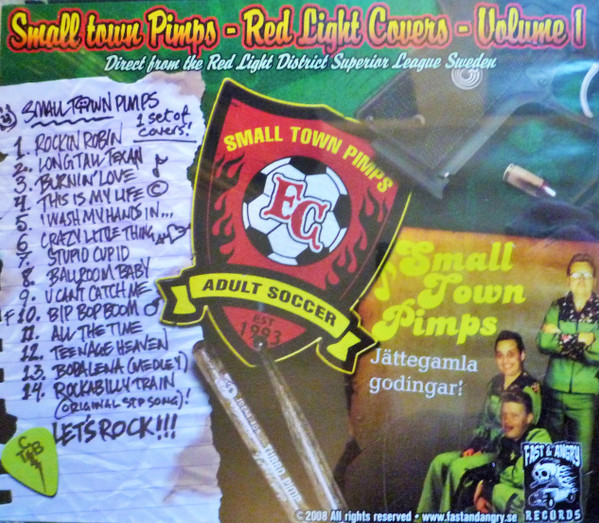 Small town Pimps - Red Light Covers - Volume 1
Direct from the Red Light District Superior League Sweden
SMALL TOWN PIMPS
1 SET OF COVERS!
1. ROCKIN ROBIN
2. LONGTALL TEXAN
3. BURNIN' LOVE
4. THIS IS MY LIFE ©
5. I WASH MY HANDS IN...
6. CRAZY LITTLE THING
7. STUPID CUPID
8. BALLROOM BABY
9. U CANT CATCH ME
10. BIP BOP BOOM
11. ALL THE TIME
12. TEENAGE HEAVEN
13. BOBALENA (MEDLEY)
14. ROCKABILLY TRAIN
(ORIGINAL STP SONG)!
LET'S ROCK!!!
SMALL TOWN PIMPS
FC
ADULT SOCCER
EST
1993
Small
Town
Pimps
Jättegamla
godingar!
FAST & ANGRY
RECORDS
© 2008 All rights reserved • www.fastandangry.se